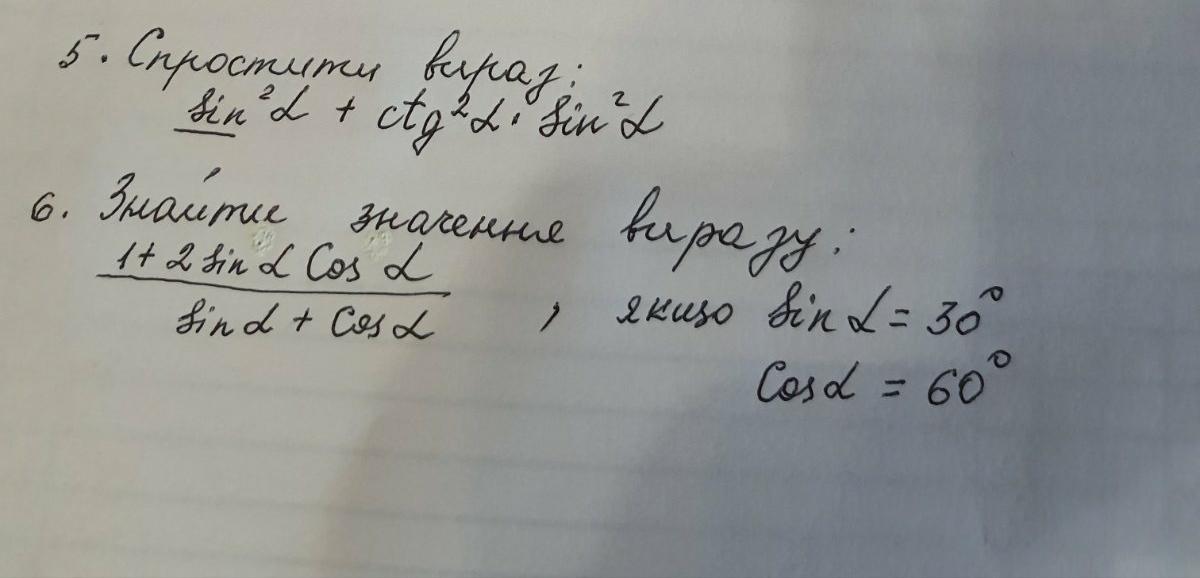 5. Спростити вираз:
sin²α + ctg²α · sin²α
6. Знайти значення виразу:
1 + 2 sin α Cos α
sin α + Cos α , якщо sin α = 30°
Cos α = 60°